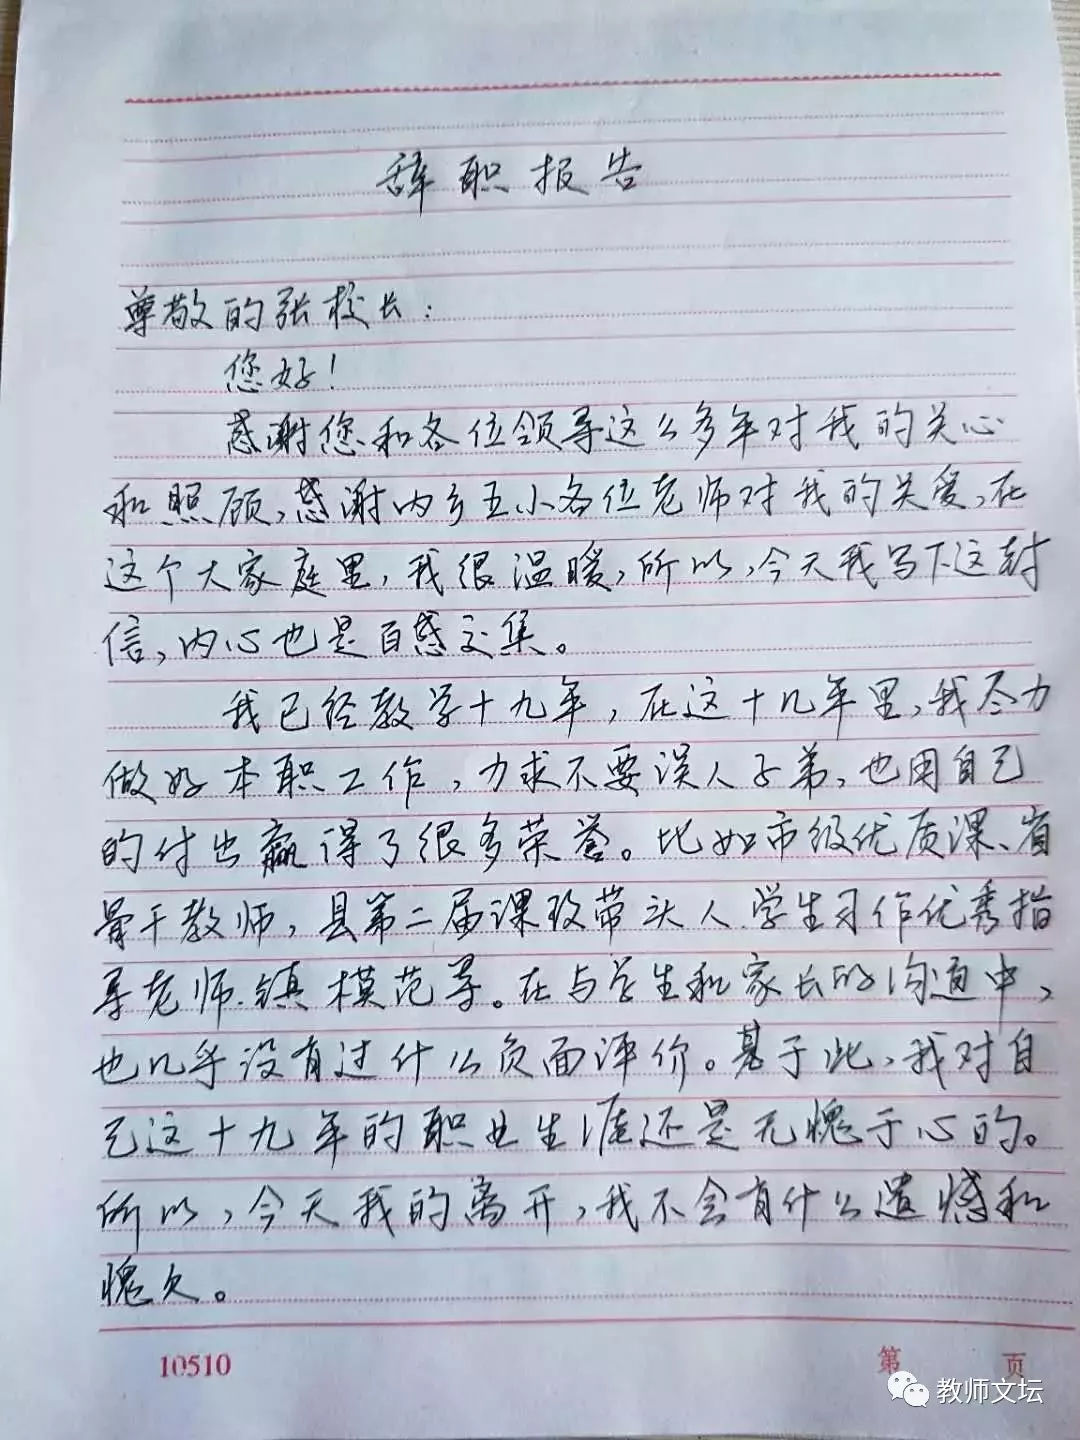 辞职报告
尊敬的张校长：
您好！
感谢您和各位领导这么多年对我的关心
和照顾，感谢内乡五小各位老师对我的关爱，在
这个大家庭里，我很温暖，所以，今天我写下这封
信，内心也是百感交集。
我已经教学十九年，在这十九年里，我尽力
做好本职工作，力求不要误人子弟，也用自己
的付出赢得了很多荣誉。比如市级优质课、省
骨干教师，县第二届课改带头人、学生习作优秀指
导老师、镇模范等。在与学生和家长的沟通中，
也几乎没有过什么负面评价。基于此，我对自
己这十九年的职业生涯还是无愧于心的。
所以，今天我的离开，我不会有什么遗憾和
愧欠。
10510
第 页
教师文坛